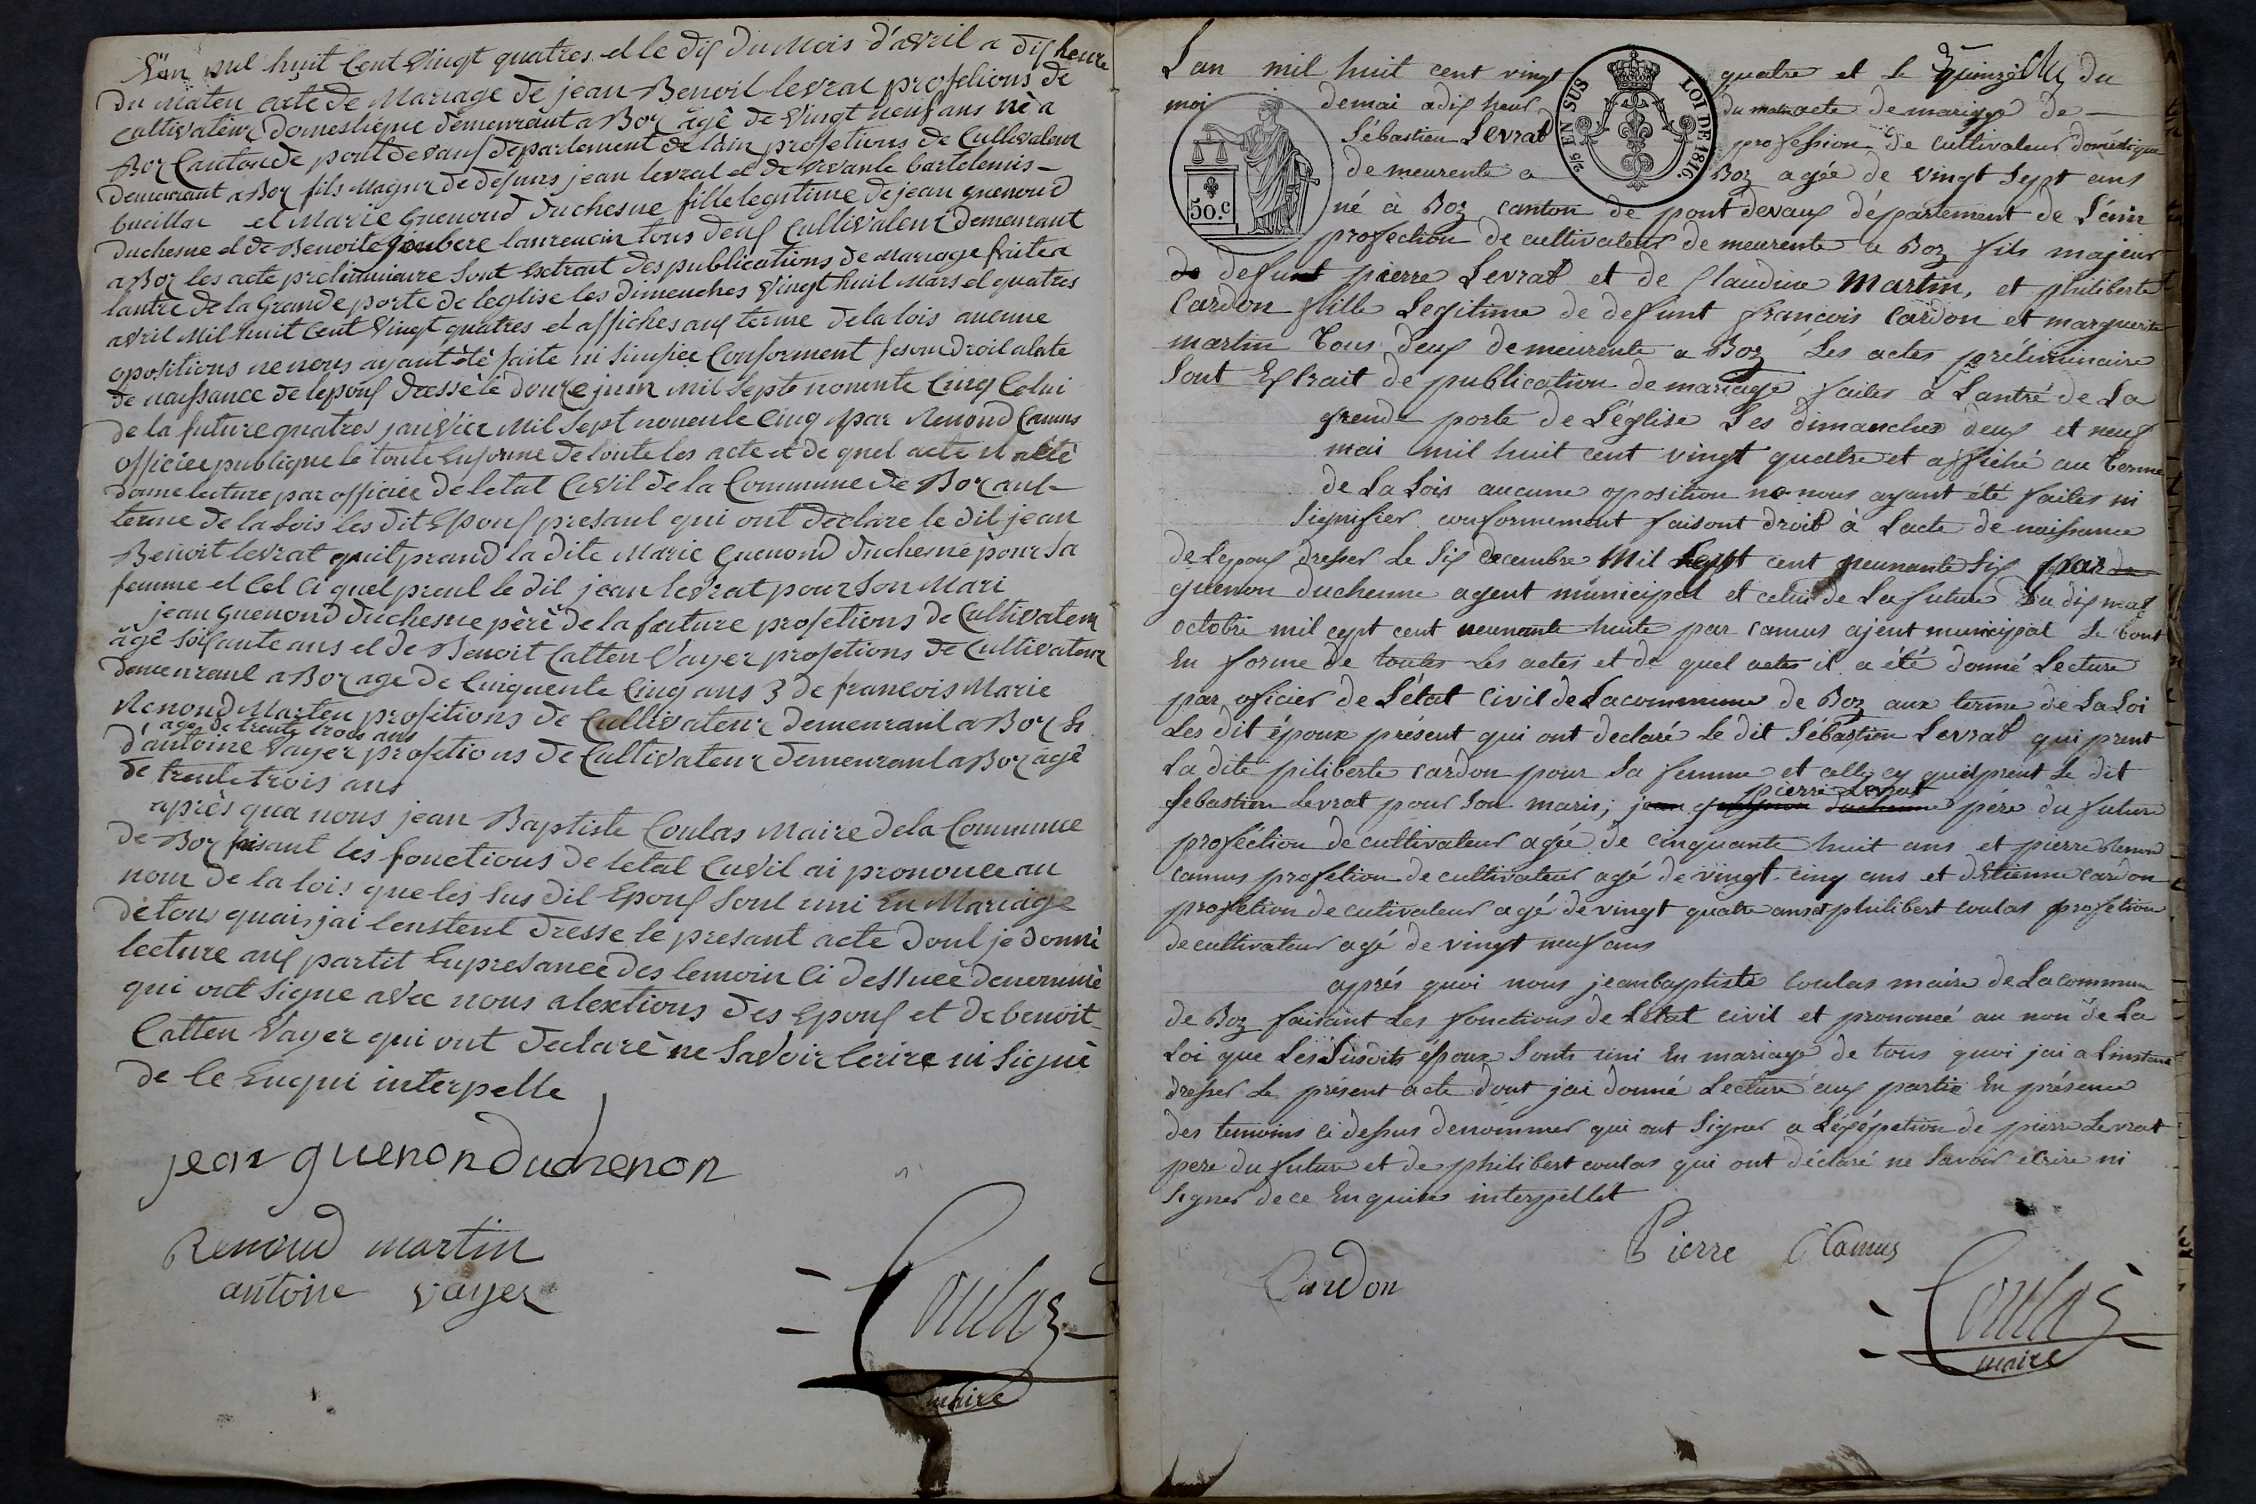 L'an mil huit Cent vingt quatres et le dix du Mois d'avril a dix heure
du maten acte de Mariage de jean Benoit levrat profetions de
Cultivateur domestique demeurant a Boz âgé de vingt neuf ans né a
Boz Canton de pont devaux departement de l'ain profetions de Cultivateur
demeurant a Boz fils Majeur de defuns jean levrat et de vivante bartelemis
bucillar et Marie Guenoud duchesne fille legitime de jean guenoud
duchesne et de Benoite Joubere laurencin tous deux Cultivateur demeurant
a Boz les acte preliminaire sont Extrait des publications de Mariage faite a
lantre de la Grande porte de leglise les dimenches vingt huit Mars et quatres
avril Mil huit Cent vingt quatres et affiches aux terme de la lois aucune
opositions ne nous ayant été faite ni Sinifiee Conforment feson droit a late
de naissance de lepoux dressé le douze juin mil Sept nonente Cinq Celui
de la future quatres janvier Mil Sept nonente Cinq par Renoud Camus
officiee publique le toute Enforme de toute les acte et de quel acte il a été
donne lecture par officiee de letat Civil de la Commune de Boz aux
terme de la Lois les dit Epoux presant qui ont déclare le dit jean
Benoit levrat quil prand la dite Marie Guenoud duchesne pour Sa
femme et Cel Ci quel prent le dit jean levrat pour Son Mari
jean Guenoud duchesne père de la future profetions de Cultivateur
âgé soixante ans et de Benoit Catten Vayer profetions de Cultivateur
demeurant a Boz age de Cinquente Cinq ans 3 de francois Marie
Renoud Marten profitions de Cultivateur demeurant a Boz
age de trente trois ans
d'antoine Vayer profetions de Cultivateur demeurant a Boz âgé
de trente trois ans
après qua nous jean Baptiste Coulas Maire de la Commune
de Boz faisant les fonctions de letat Civil ai prononcé au
nom de la lois que les Sus dit Epoux Sont uni En Mariage
de tou quai, jai lenstent dresse le presant acte dont je donné
lecture aux partit Enpresance des temoin Ci dessuee denommé
qui ont Signe avec nous alextions des Epoux et de benoit
Catten Vayer qui ont déclaré ne Savoir Ecrire ni Signé
de le Enqui interpelle
jean guenon Duchenon
Renoud martin
antoine vayer
Coulas
maire
Lan mil huit cent vingt quatre et le quinze du
moi de mai a dix heur du matin acte de mariage de
Sébastien Levrat profession de cultivateur domestique
demeurente a Boz agée de vingt Sept ans
né à Boz canton de pont devaux département de L'ain
profection de cultivateur demeurente a Boz fils majeur
de defunt pierre Levrat et de Claudine Martin, et philiberte
Cardon fille Legitime de defunt francois Cardon et marguerite
martin Tous deux demeurente a Boz Les actes préliminaire
Sont Extrait de publication de mariage faites à Lantré de La
grende porte de L'église Les dimanches deux et neuf
mai mil huit cent vingt quatre et affiché au terme
de La Lois aucune oposition ne nous ayant été faites ni
Signifier conformement faisont droit à Lacte de naissance
de Lepoux dresser Le Six decembre Mil Sept cent neunante Six par
guenon duchenne agent municipal et celui de La future du dix
octobre mil cept cent neunante huite par camus ajent municipal Le tout
En forme de toutes Les actes et de quel actes il a été donné Lecture
par oficier de L'état Civil de La commune de Boz aux terme de La Loi
Les dit époux présent qui ont declaré Le dit Sébastien Levrat qui prent
La dite piliberte cardon pour Sa femme et celle cy quel prent Le dit
Sebastien Levrat pour Son maris; jean guenon duchenne pierre Levrat père du future
profection de cultivateur agée de cinquante huit ans et pierre Renoud
camus profetion de cultivateur agé de vingt cinq ans et detienne cardon
profetion de cutivateur agé de vingt quatre ans et philibert coulas profetion
de cultivateur agé de vingt neuf ans
aprés quoi nous jean baptiste coulas maire de La commun
de Boz faisant Les fonctions de L'état civil et prononcé au non de La
Loi que Les Susdits époux Sonts uni En mariage de tous quoi jai a Linstant
dresser Le present acte dont jai donné Lecture aux partie En présence
des temoins ci dessus denommer qui ont Signer a Lexépetion de pierre Levrat
pere du future et de philibert coulas qui ont déclaré ne Savoir écrire ni
Signer de ce Enquires interpellet
Pierre Camus
Cardon
Coulas
maire
50.c
2/5 EN SUS
LOI DE 1816.